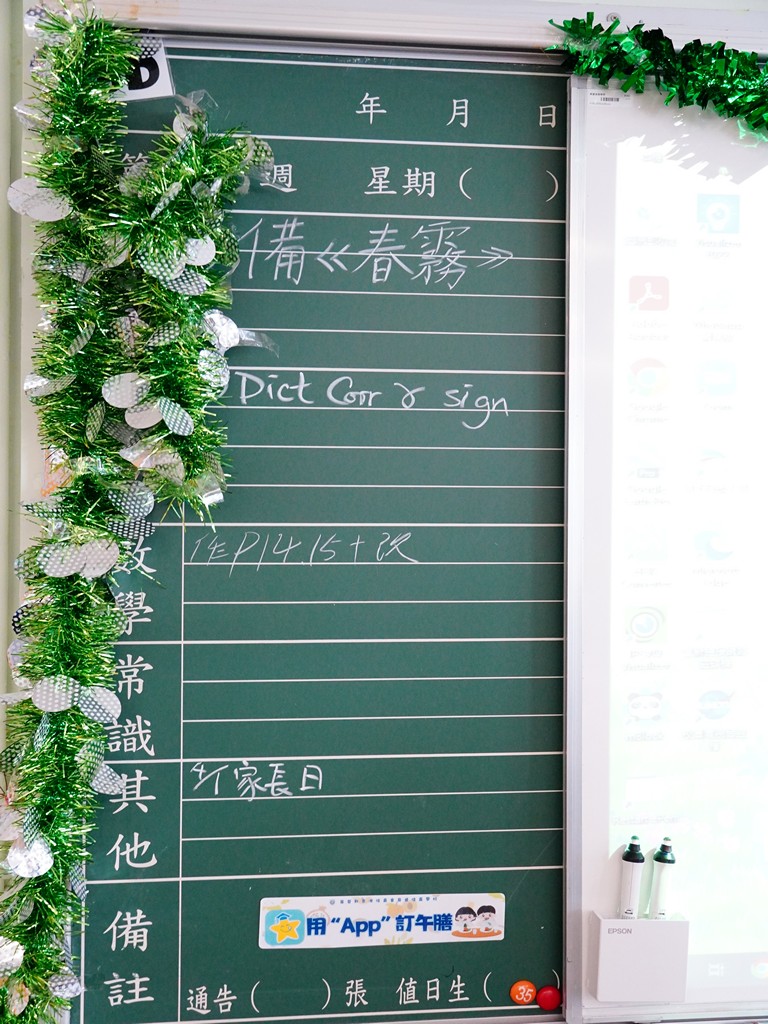 D
年 月 日
週 星期( )
備《春霧》
Dict Corr & sign
數學 作P14.15+改
常識
其他 4/1家長日
備註
用“App”訂午膳
通告( )張 值日生( )
35
EPSON